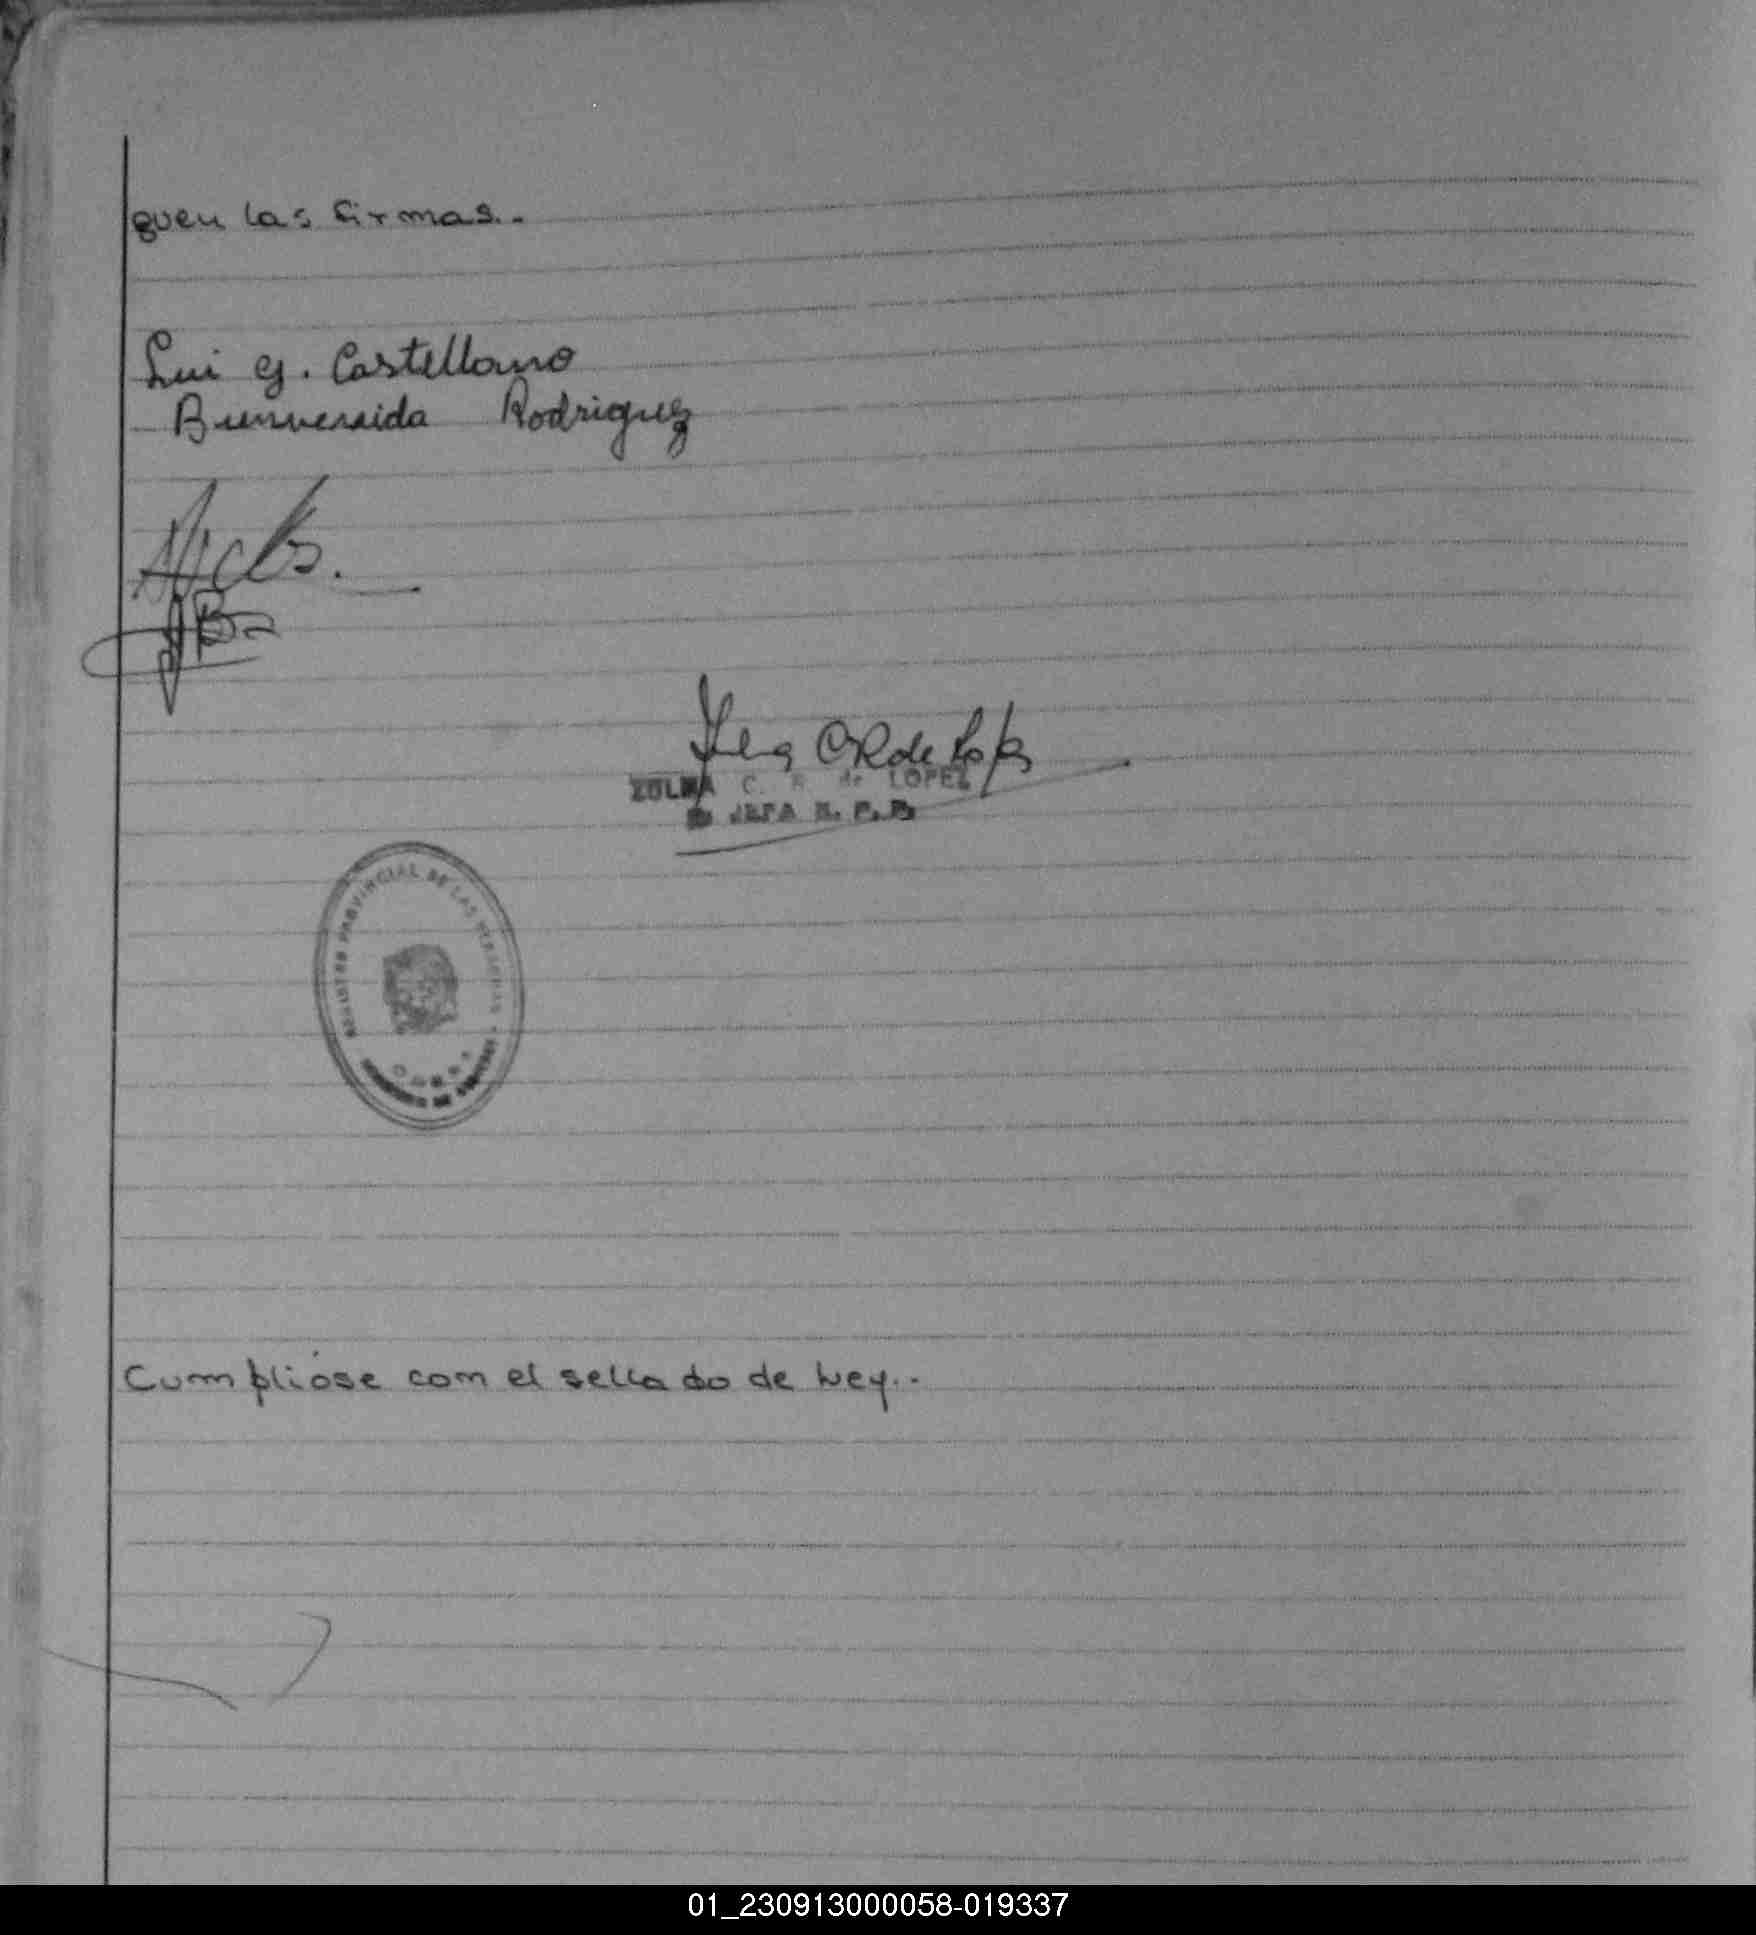 guen las firmas.-
Lui G. Castellano
Bienvenida Rodriguez
ZULMA C. R. de LOPEZ
JEFA R. P. P.
REGISTRO PROVINCIAL DE LAS PERSONAS
Cumplióse com el sellado de Ley.-
01_230913000058-019337